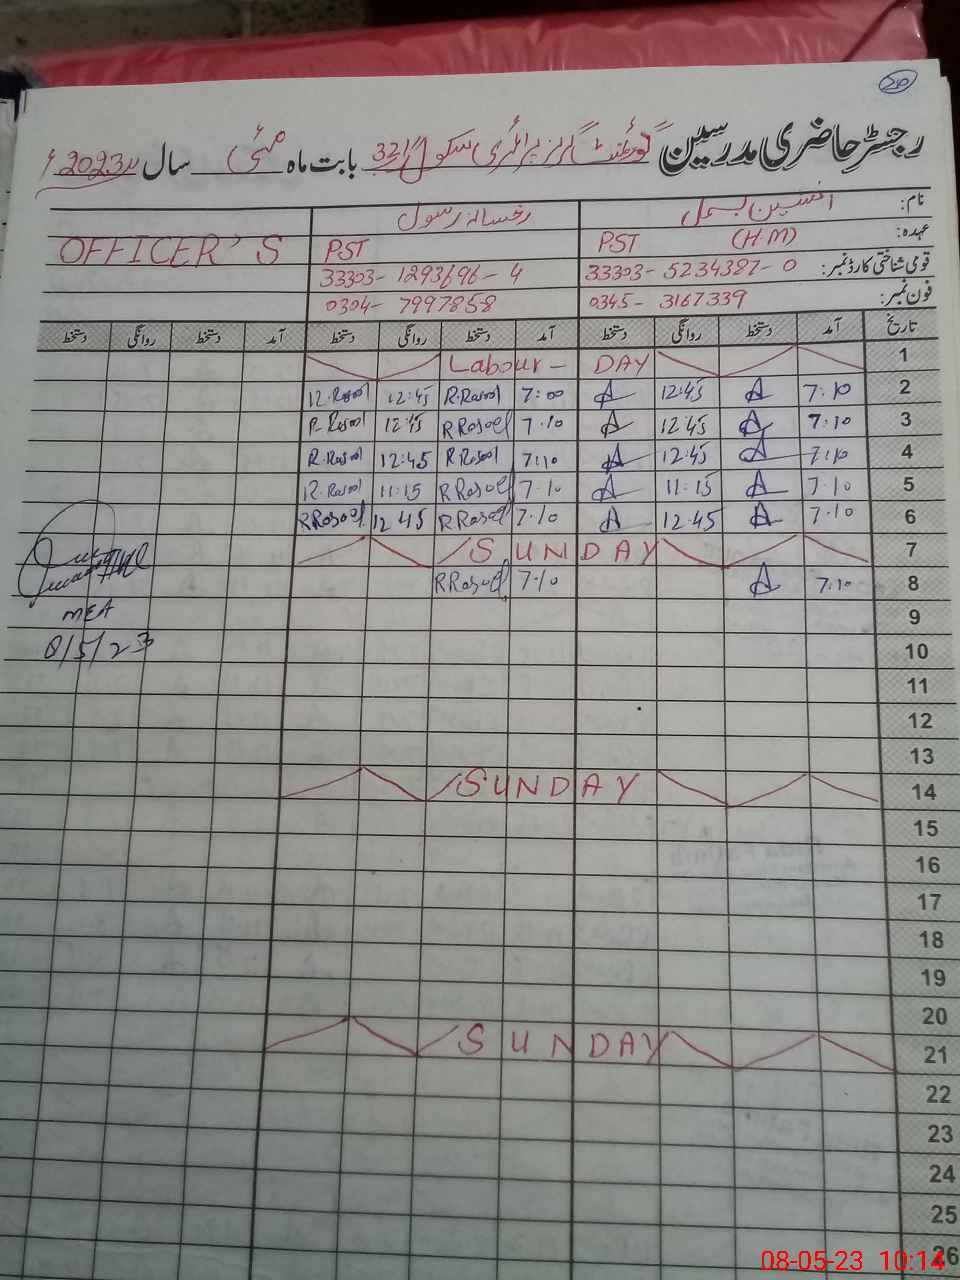 20
رجسٹر حاضری مدرسین گورنمنٹ گرلز پرائمری سکول 321 بابت ماہ مئی سال 2023ء
نام: افشین بسمل رخسانہ رسول
عہدہ: PST (H.M) PST OFFICER'S
قومی شناختی کارڈ نمبر: 33303-5234387-0 33303-1293696-4
فون نمبر: 0345-3167339 0304-7997858
تاریخ آمد دستخط روانگی دستخط آمد دستخط روانگی دستخط آمد دستخط روانگی دستخط
1 Labour - DAY
2 7:10 A 12:45 A 7:00 R.Rasool 12:45 R.Rasool
3 7:10 A 12:45 A 7.10 R Rasool 12:45 R.Rasool
4 7:10 A 12:45 A 7:10 R.Rasool 12:45 R.Rasool
5 7.10 A 11:15 A 7.10 R Rasool 11:15 R.Rasool
6 7.10 A 12:45 A 7.10 R Rasool 12 45 R Rasool
7 SUNDAY
8 7:10 A 7.10 R Rasool
MEA
9
8/5/23
10
11
12
13
14 SUNDAY
15
16
17
18
19
20
21 SUNDAY
22
23
24
25
26
08-05-23 10:14